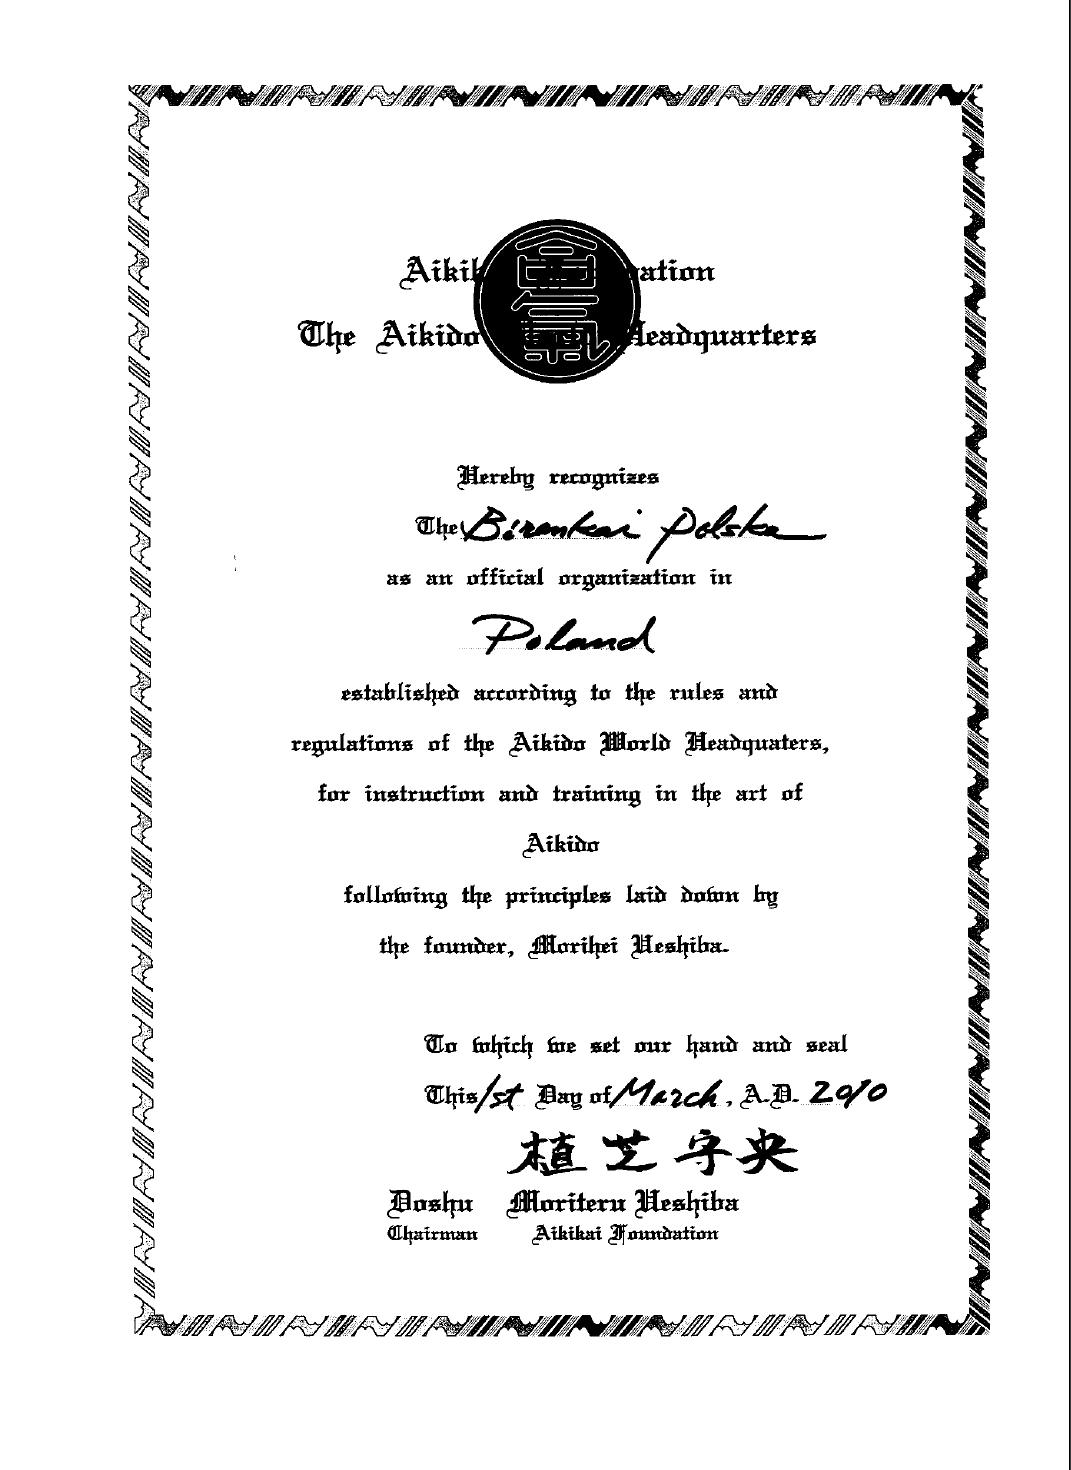 Aikik ation
The Aikido Headquarters
Hereby recognizes
The Birankai Polska
as an official organization in
Poland
established according to the rules and
regulations of the Aikido World Headquaters,
for instruction and training in the art of
Aikido
following the principles laid down by
the founder, Morihei Ueshiba.
To which we set our hand and seal
This 1st Day of March, A.D. 2010
植芝守央
Doshu Moriteru Ueshiba
Chairman Aikikai Foundation